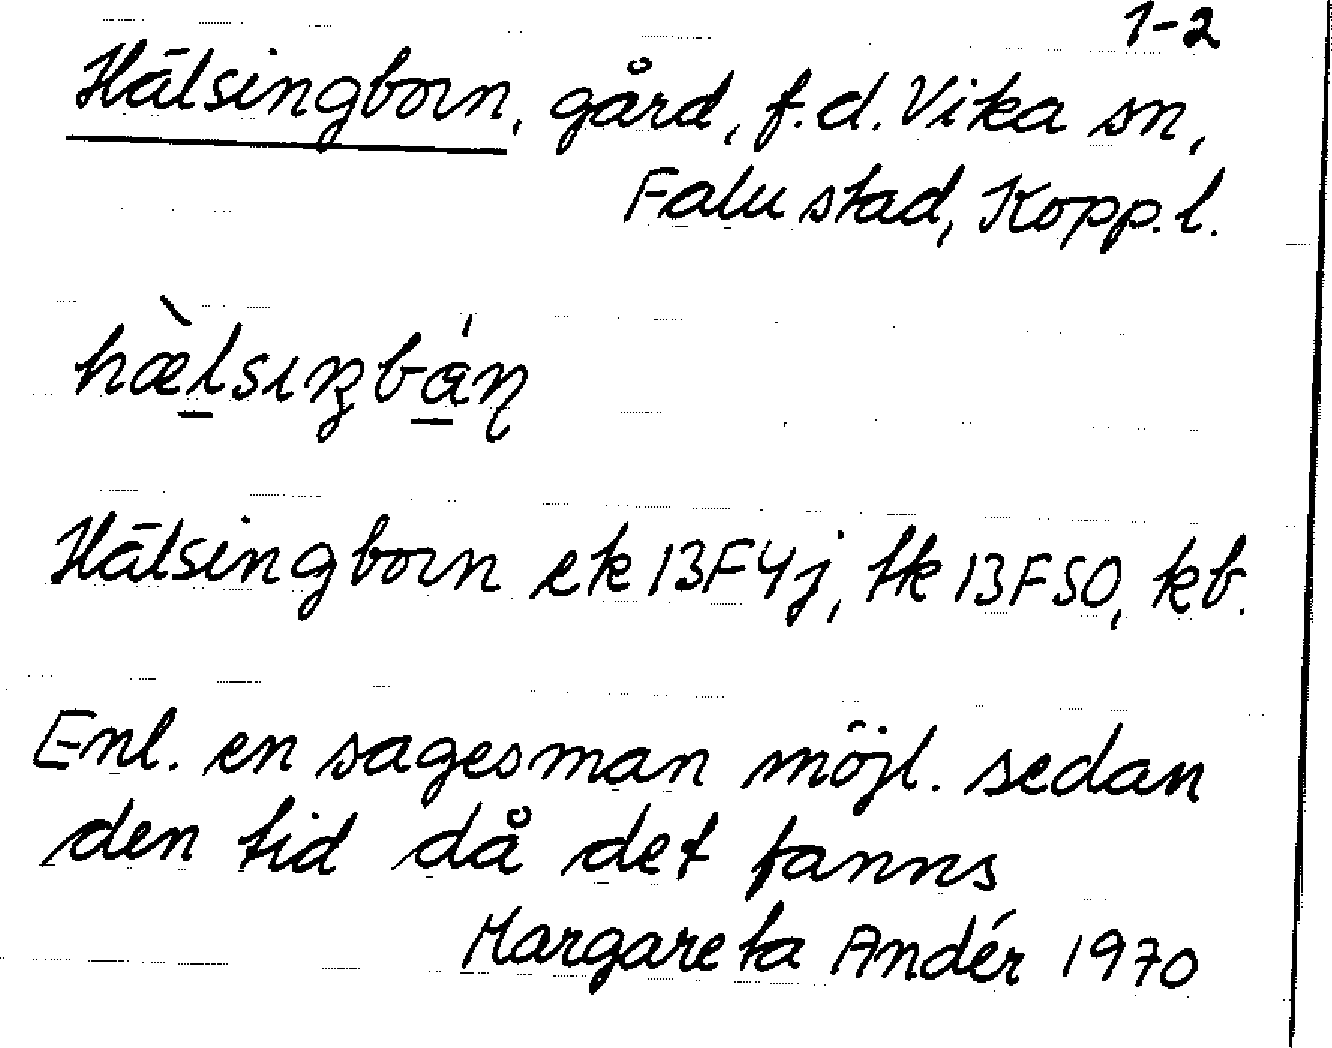 1-2
Hälsingborn, gård, f.d. Vika sn,
Falu stad, Kopp. l.
hæ̀lsıŋbáɳ
Hälsingborn ek 13F4j, tk 13F50, kb.
Enl. en sagesman möjl. sedan
den tid då det fanns
Margareta Andér 1970